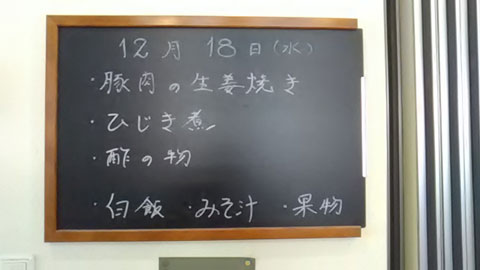 12月 18日(水)
・豚肉の生姜焼き
・ひじき煮
・酢の物
・白飯 ・みそ汁 ・果物